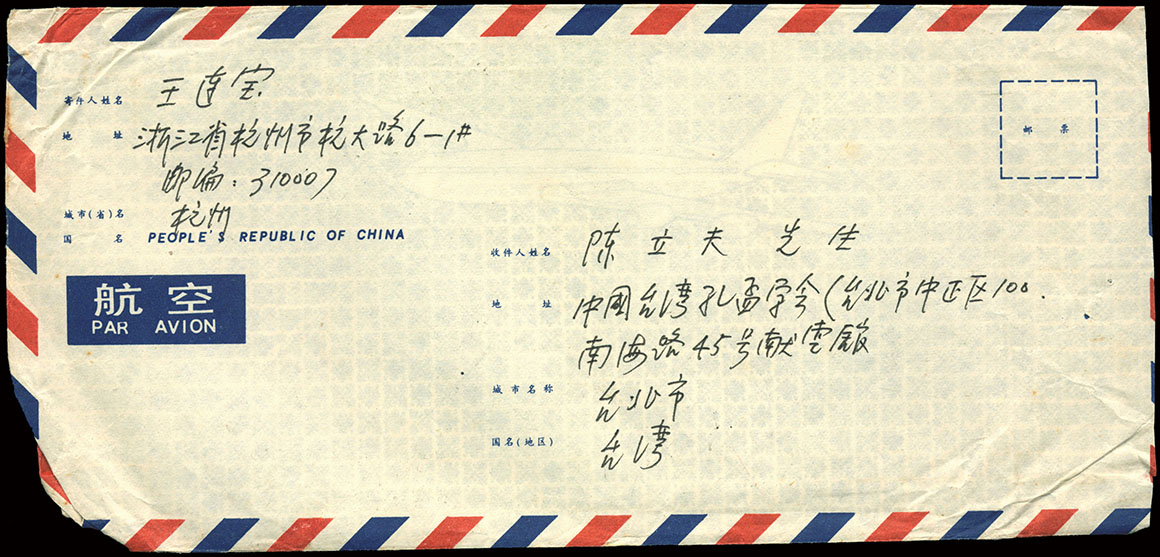 寄件人姓名 王连宝
地址 浙江省杭州市杭大路6-1#
邮编:310007
城市(省)名 杭州
国名 PEOPLE'S REPUBLIC OF CHINA
航空
PAR AVION
邮票
收件人姓名 陈立夫 先生
地址 中國台湾孔孟学会(台北市中正区100.
南海路45号献堂館
城市名称 台北市
国名(地区) 台湾